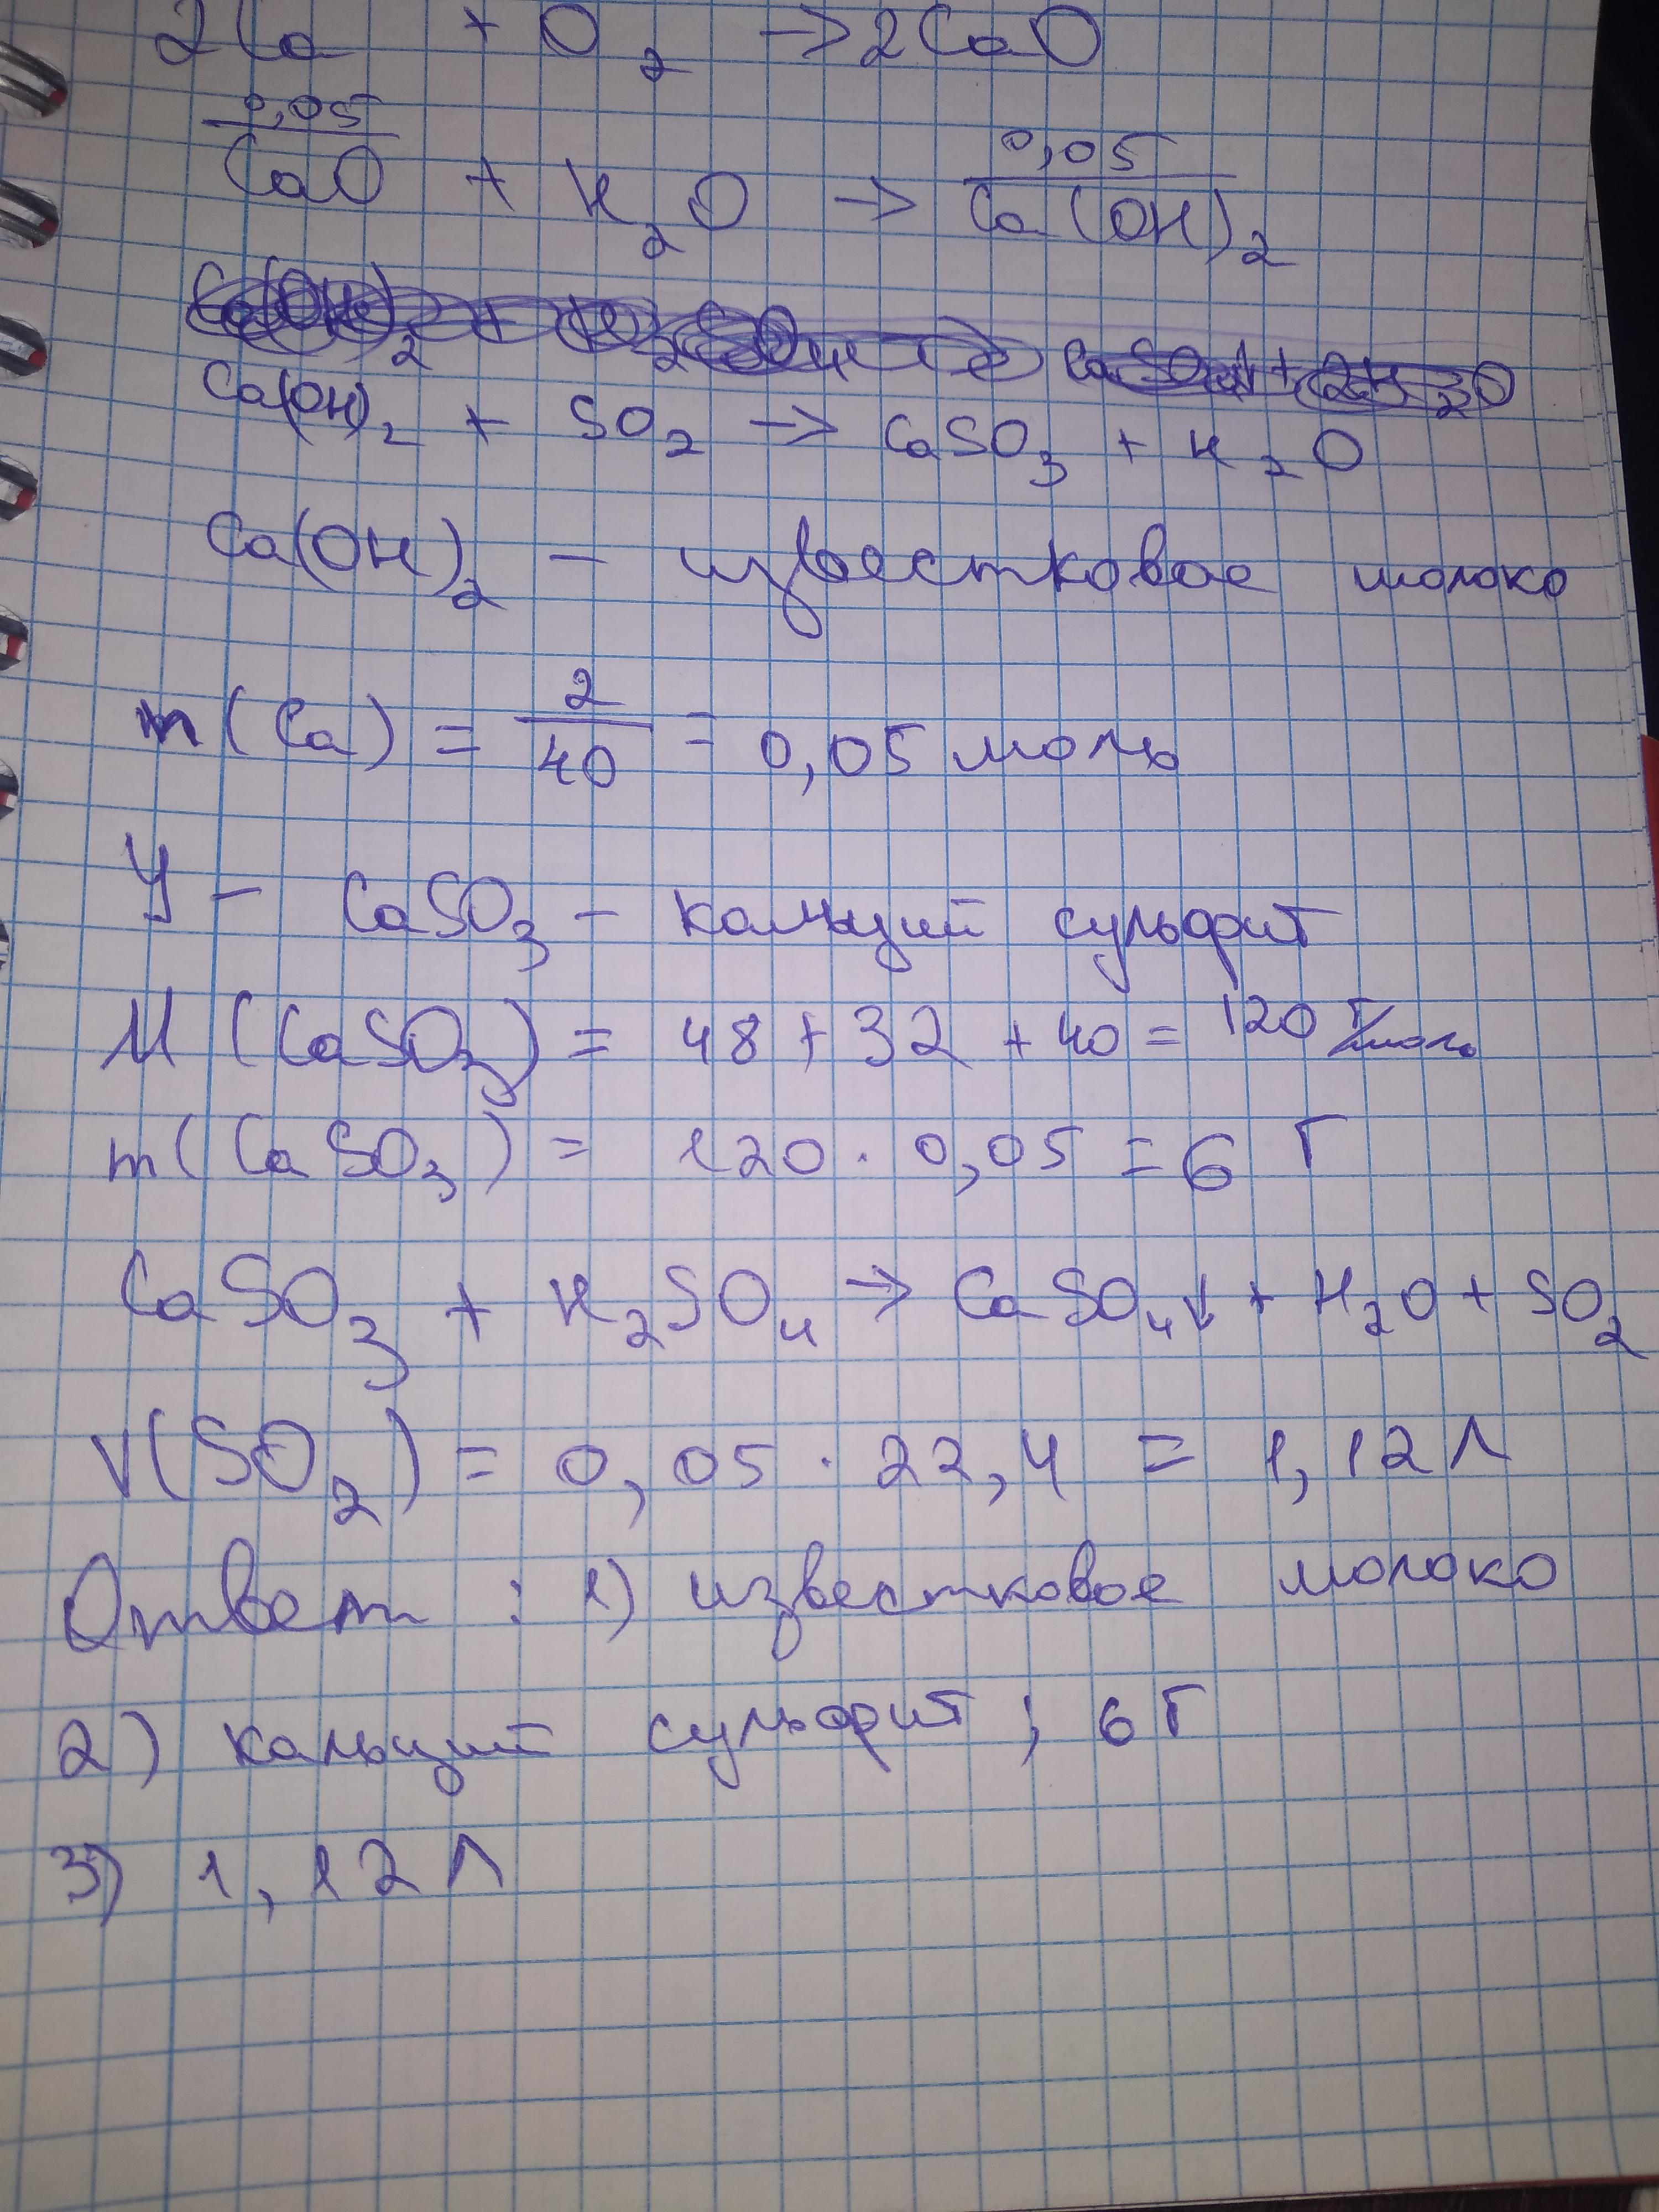 2Ca + O2 →2CaO
0,05 0,05
CaO + H2O → Ca(OH)2
Ca(OH)2 + SO2 → CaSO3 + H2O
Ca(OH)2 – известковое молоко
n(Ca) = 2/40 = 0,05 моль
У – CaSO3 – кальций сульфит
M(CaSO3) = 48+32+40 = 120 г/моль
m(CaSO3) = 120 · 0,05 = 6 г
CaSO3 + H2SO4 → CaSO4↓ + H2O + SO2
V(SO2) = 0,05 · 22,4 = 1,12 л
Ответ: 1) известковое молоко
2) кальций сульфит; 6 г
3) 1,12 л